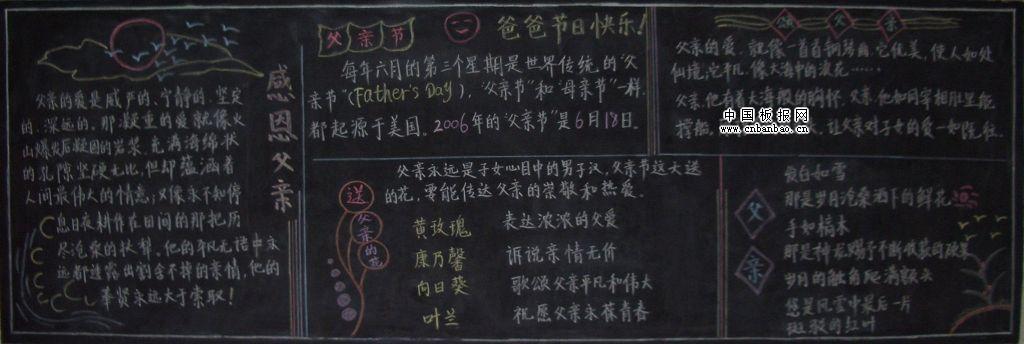 感恩父亲
父亲的爱是威严的、宁静的、坚定
的、深远的。那凝重的爱就像火
山爆发后凝固的岩浆，充满海绵状
的孔隙坚硬无比，但却蕴涵着
人间最伟大的情意；又像永不知停
息日夜耕作在田间的那把历
尽沧桑的
他的平凡无语中永
远都透露出割舍不掉的亲情，他的
奉贤永远大于索取！
父亲节
爸爸节日快乐！
每年六月的第三个星期是世界传统的“父
亲节”（Father's Day），“父亲节”和“母亲节”一样，
都起源于美国。2006年的“父亲节”是6月18日。
送父亲的花
父亲永远是子女心目中的男子汉，父亲节这天送
的花，要能传达父亲的荣敬和热爱。
黄玫瑰 表达浓浓的父爱
康乃馨 诉说亲情无价
向日葵 歌颂父亲平凡和伟大
叶兰 祝愿父亲永葆青春
颂父亲
父亲的爱，就像一首首钢琴曲，它优美，使人如处
仙境；它平凡，像大海中的浪花……
父亲，他有着大海般的胸怀，父亲，他如同宰相肚里能
撑船，
让父亲对子女的爱一如既往。
中国板报网
www.cnbanbao.cn
父亲
发白如雪
那是岁月沧桑洒下的鲜花
手如槁木
那是神龙赐予不断收获的硕果
岁月的触角爬满额头
您是风雪中最后一片
斑驳的红叶